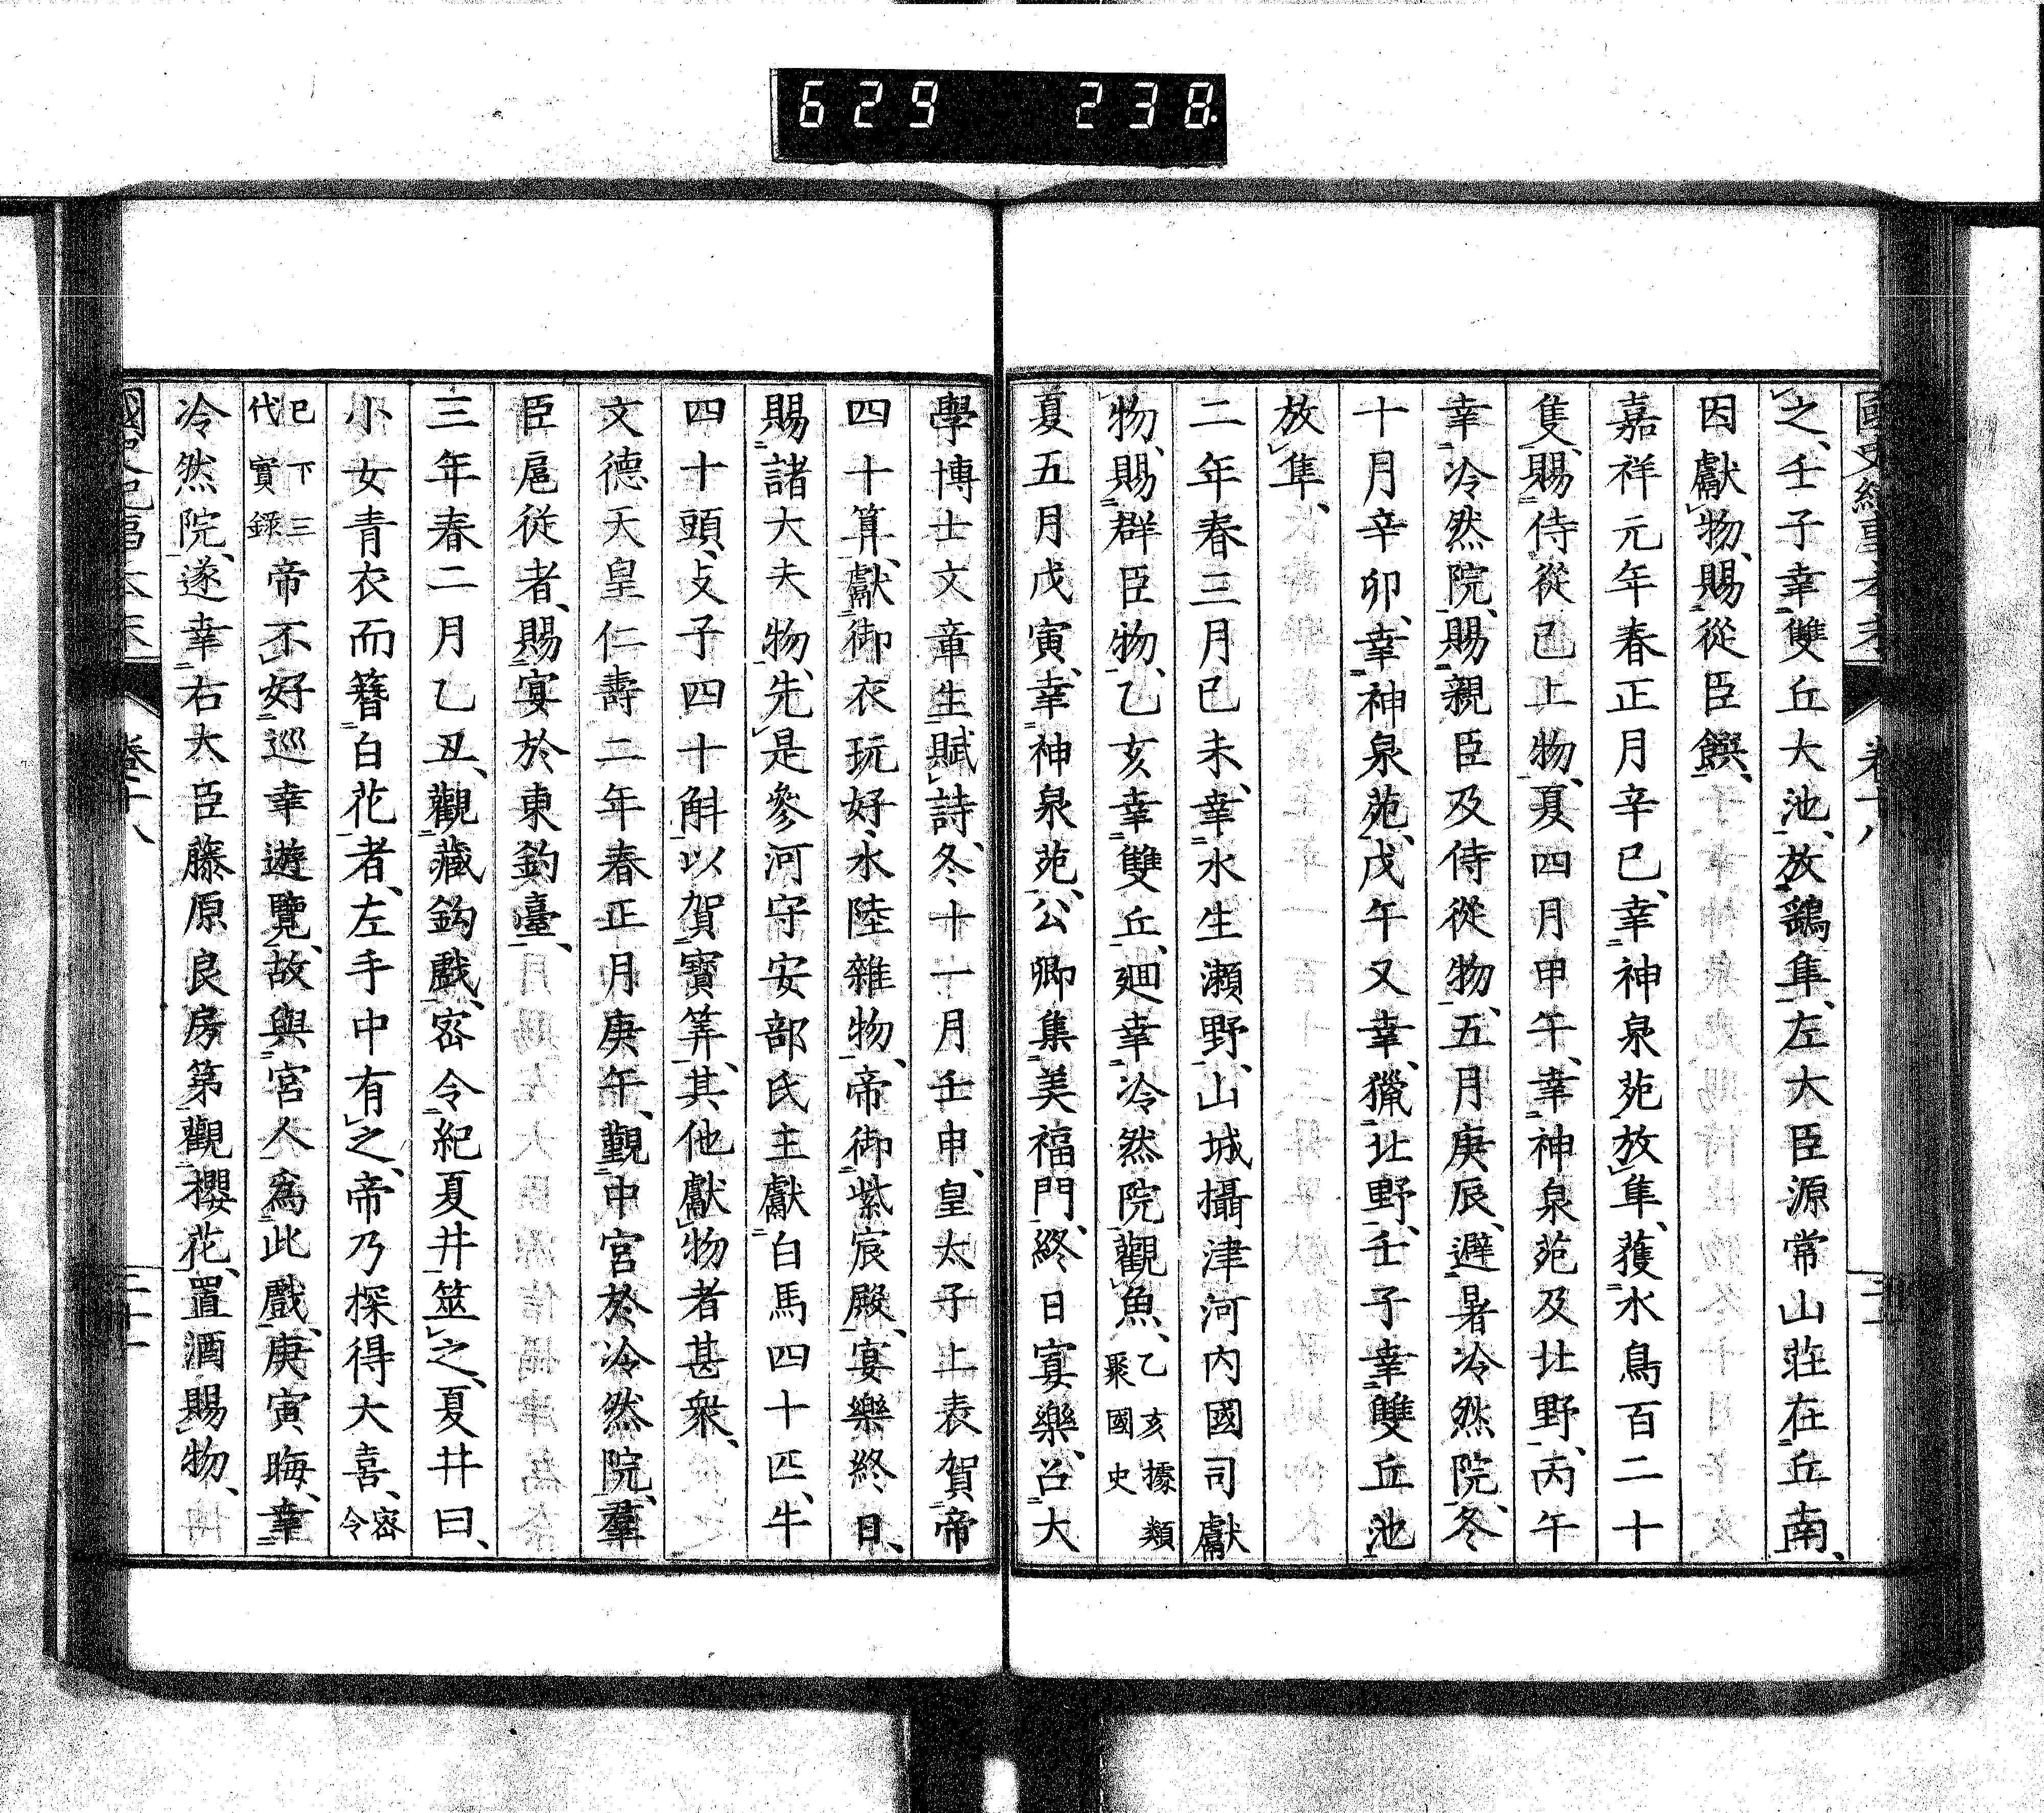 629 238
之、壬子幸雙丘大池、放鷂隼、左大臣源常山莊在丘南、
因獻物、賜從臣饌、
嘉祥元年春正月辛巳、幸神泉苑放隼、獲水鳥百二十
隻、賜侍從已上物、夏四月甲午、幸神泉苑及北野、丙午
幸冷然院、賜親臣及侍從物、五月庚辰、避暑冷然院、冬
十月辛卯、幸神泉苑、戊午又幸、獵北野、壬子幸雙丘池
放隼、
二年春三月已未、幸水生瀨野、山城攝津河內國司獻
物、賜群臣物、乙亥幸雙丘、廻幸冷然院觀魚、乙亥據類
聚國史
夏五月戊寅、幸神泉苑、公卿集美福門、終日宴樂、召大
學博士文章生賦詩、冬十一月壬申、皇太子上表賀帝
四十算、獻御衣玩好、水陸雜物、帝御紫宸殿、宴樂終日、
賜諸大夫物、先是參河守安部氏主獻白馬四十匹、牛
四十頭、攴子四十斛、以賀寶筭、其他獻物者甚衆、
文德天皇仁壽二年春正月庚午、觀中宮於冷然院、羣
臣扈從者、賜宴於東釣臺、
三年春二月乙丑、觀藏鈎戲、密令紀夏井筮之、夏井曰、
小女青衣而簪白花者、左手中有之、帝乃探得大喜、密令
已下三
代實錄
帝不好巡幸遊覽、故與宮人爲此戲、庚寅晦、幸
冷然院、遂幸右大臣藤原良房第、觀櫻花、置酒賜物、
卷十八